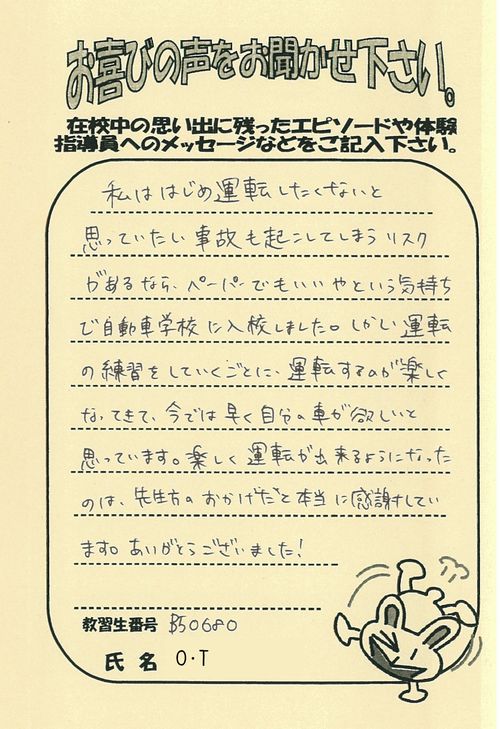 お喜びの声をお聞かせ下さい。
在校中の思い出に残ったエピソードや体験
指導員へのメッセージなどをご記入下さい。
私ははじめ運転したくないと
思っていたい事故も起こしてしまうリスク
があるなら、ペーパーでもいいやという気持ち
で自動車学校に入校しました。しかし運転
の練習をしていくごとに、運転するのが楽しく
なってきて、今では早く自分の車が欲しいと
思っています。楽しく運転が出来るようになった
のは、先生方のおかげだと本当に感謝してい
ます。ありがとうございました!
教習生番号 B50680
氏名 O・T